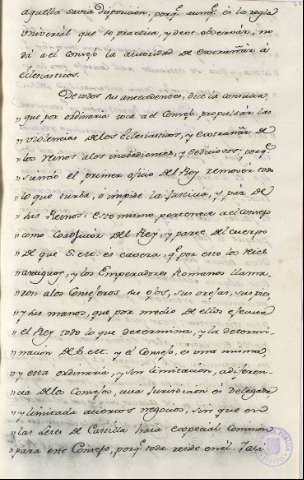 aquella sacra disposicion, porq.e aunq.e es la regla
universal que se practica, y deve observar, no
da al consejo la autoridad de estrañar à
Eclesiasticos.
De todos sus antecedentes, dice la consulta
"que por ordinario toca al Consejo propulsar las
"violencias de los Eclesiasticos, y estrañar de
"los Reinos a los inobedientes, y sediciosos, porq.e
"siendo el primer oficio del Rey remover todo
"lo que turba, ò impide la Justicia, y paz de
"sus Reinos. Esto mismo pertenece al Consejo
"como Coadjutor del Rey, y parte del cuerpo
"de que S. es cavera, q.e por esto los
"antiguos, y los Emperadores Romanos llama
"ron a los Consejeros sus ojos, sus orejas, sus pies,
"y sus manos, que por medio de ellos ejecuta
"el Rey todo lo que determina, y la determi
"nacion de S. y el Consejo, es una misma,
"y esta ordinaria, y sin limitacion, à diferen
"cia de los Consejos, cuia Jurisdicion es delegada
"y limitada à ciertos negocios, sin que en
"las Leies de Castilla haia especial comision
"para este Consejo, porq.e todo reside en èl. Jasi